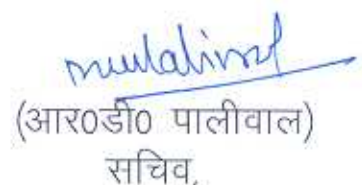 (आर0डी0 पालीवाल)
सचिव,